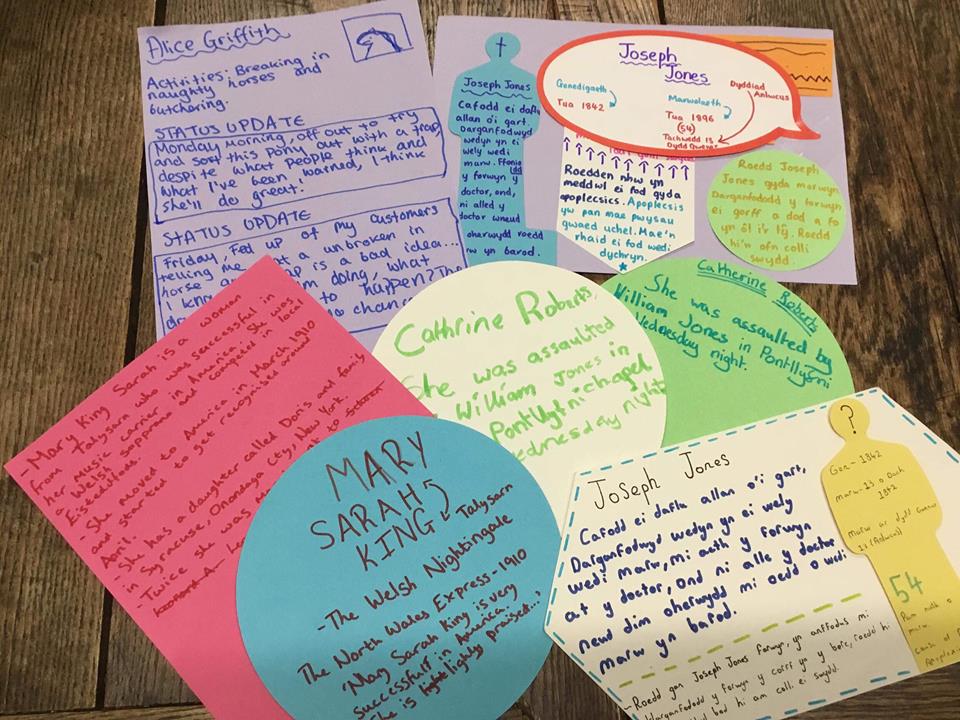 Alice Griffith
Activities: Breaking in
naughty horses and
butchering.
STATUS UPDATE
Monday morning, off out to try
and sort this pony out with a trap,
despite what people think and
what I've been warned, I think
she'll do great!
STATUS UPDATE
Friday, Fed up of my customers
telling me
a unbroken in
horse
is a bad idea...
I
doing, what
to happen? The
chance
Joseph Jones
Cafodd ei daflu
allan o'i gart.
Darganfodwyd
wedyn yn ei
wely wedi
marw. Ffoniodd
y forwyn y
doctor, ond,
ni alled y
doctor wneud
oherwydd roedd
yn barod.
Joseph
Jones
Genedigaeth
Tua 1842
Marwolaeth
Tua 1896
(54)
Tachwedd 13
Dydd Gwener
Dyddiad
Anlwcus
Roedden nhw yn
meddwl ei fod gyda
apoplecsics. Apoplecsis
yw pan mae pwysau
gwaed uchel. Mae'n
rhaid ei fod wedi
dychryn.
Roedd Joseph
Jones gyda morwyn
Darganfododd y forwyn
ei gorff a dod a fo
yn ôl i'r tŷ. Roedd
hi'n ofn colli
swydd.
Catherine Roberts
She was assaulted by
William Jones in Pontllyfni
Wednesday night.
Cathrine Roberts,
She was assaulted
William Jones in
Pontllyfni chapel
Wednesday night
- Mary King Sarah is a woman
from Talysarn who was successful in
her music carrier in America. She was
a Welsh sopprano and competed in local
Eisteddfods.
- She moved to America in March 1910
and started to get recognised around
April.
- She has a daughter called Doris and family
in Syracuse, Onondaga City, New York.
- Twice she was
MARY
SARAH
KING
Talysarn
- The Welsh Nightingale
The North Wales Express - 1910
'Mary Sarah King is very
successful in America,
She is highly praised...'
Joseph Jones
Cafodd ei daflu allan o'i gart,
Darganfodwyd wedyn yn ei wely
wedi marw, mi aeth y forwyn
at y doctor, ond ni alle y doctor
neud dim oherwydd mi oedd o wedi
marw yn barod.
- Roedd gan Joseph Jones forwyn, yn anffodus mi
ddarganfododd y forwyn y corff yn y bore, roedd hi
bod hi am colli ei swydd.
?
Gen - 1842
marw - 13 o Dach
1842
marw ar dydd Gwener
13 (Anlwcus)
54